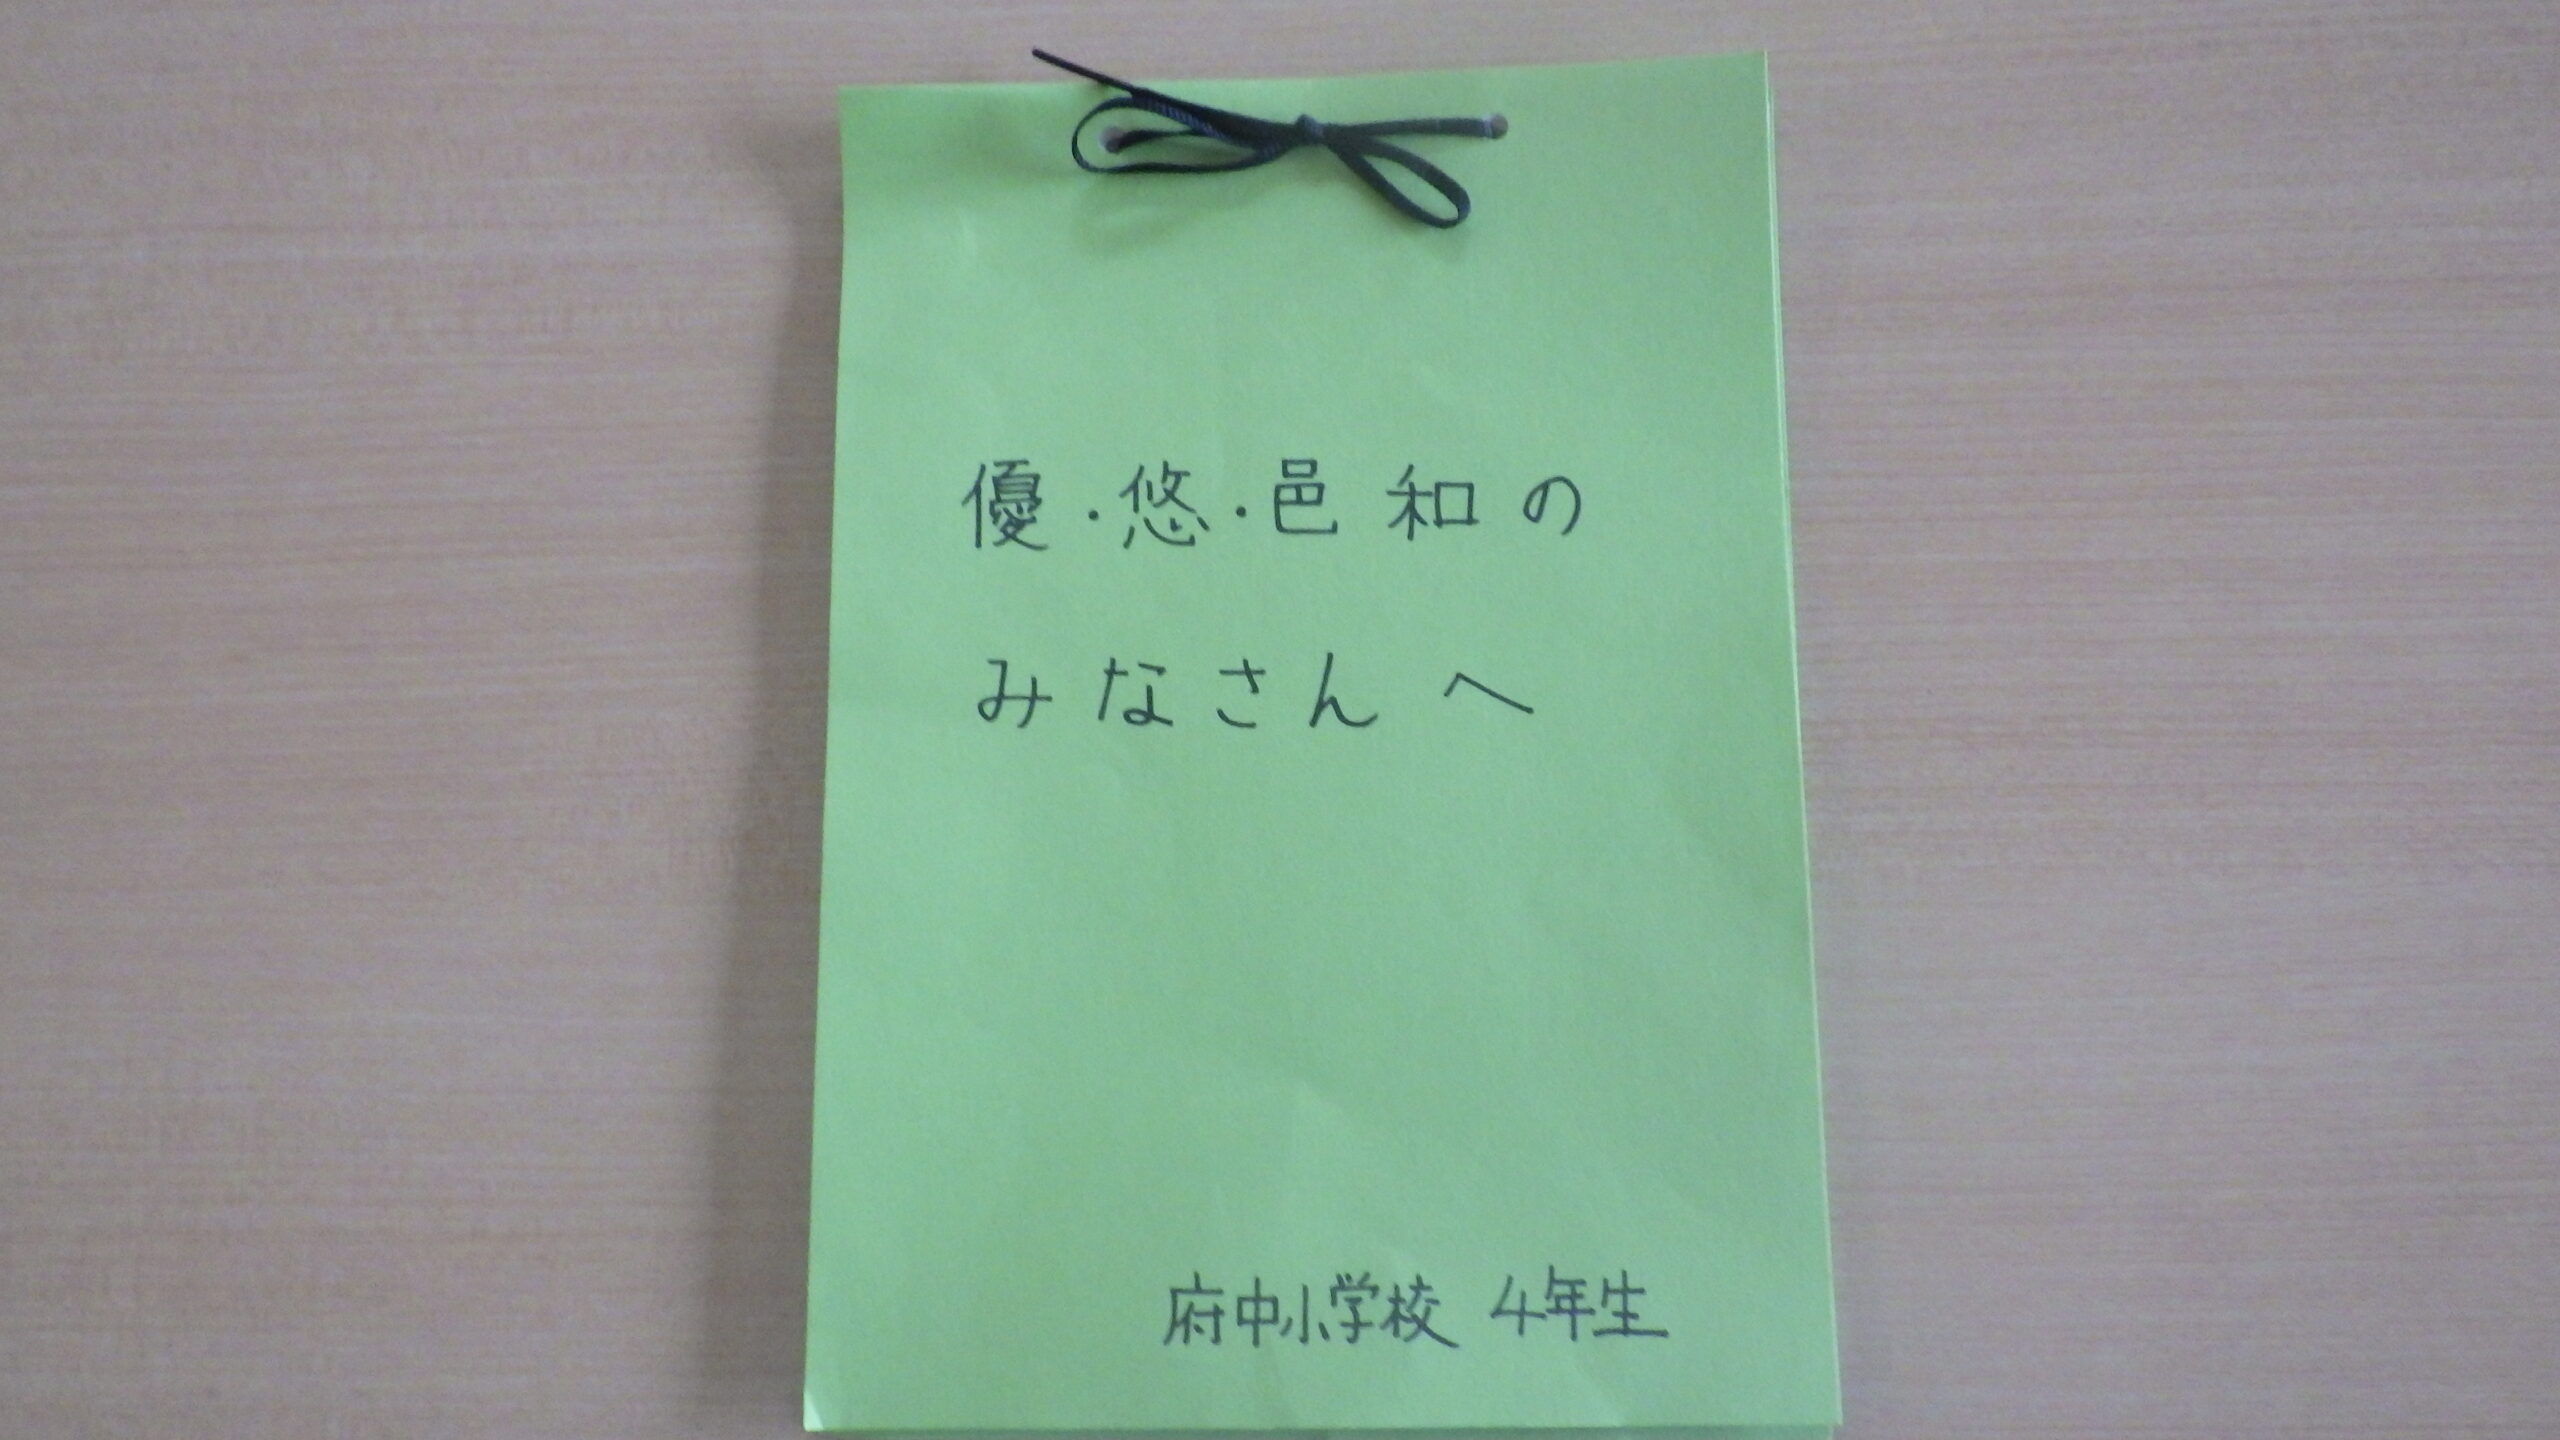 優・悠・邑 和の
みなさんへ
府中小学校 4年生